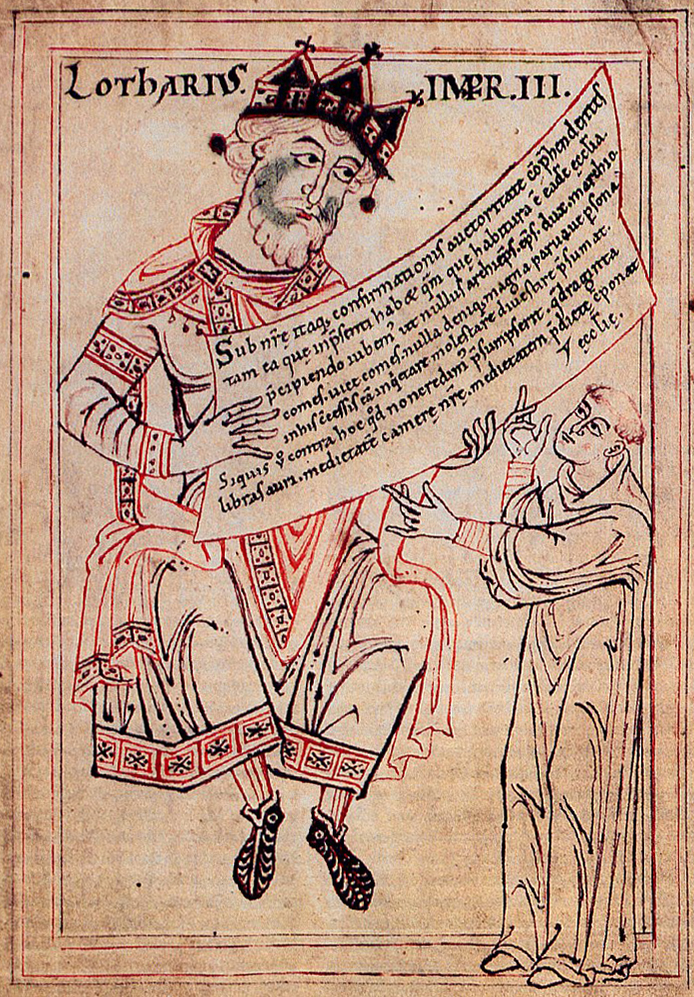 LOTHARIVS. IMPR.III.
Sub nr̄e itaq; confirmationis auctoritate cōp̄hendentes
tam ea que inp̄senti hab& q̄m que habitura ē eadē ęcclīa.
p̄cipiendo iubem' ut nullus archiep̄s. ep̄s. dux. marchio
comes. uicecomes. nulla deniq; magna paruaue p̄sona
inhis c̄cessis eā inq̄etare molestare diuestire p̄sumat.
Siquis ů contra hoc qd̄ non credim' p̄sumpserit. q̄draginta
libras auri. medietatē camerę nr̄ę. medietatem p̄dictę c̄ponat
ęcclię.